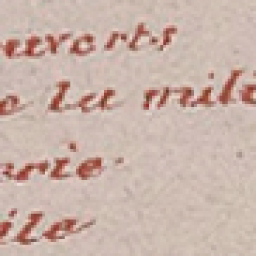 ouverts
e la mili
erie.
ile